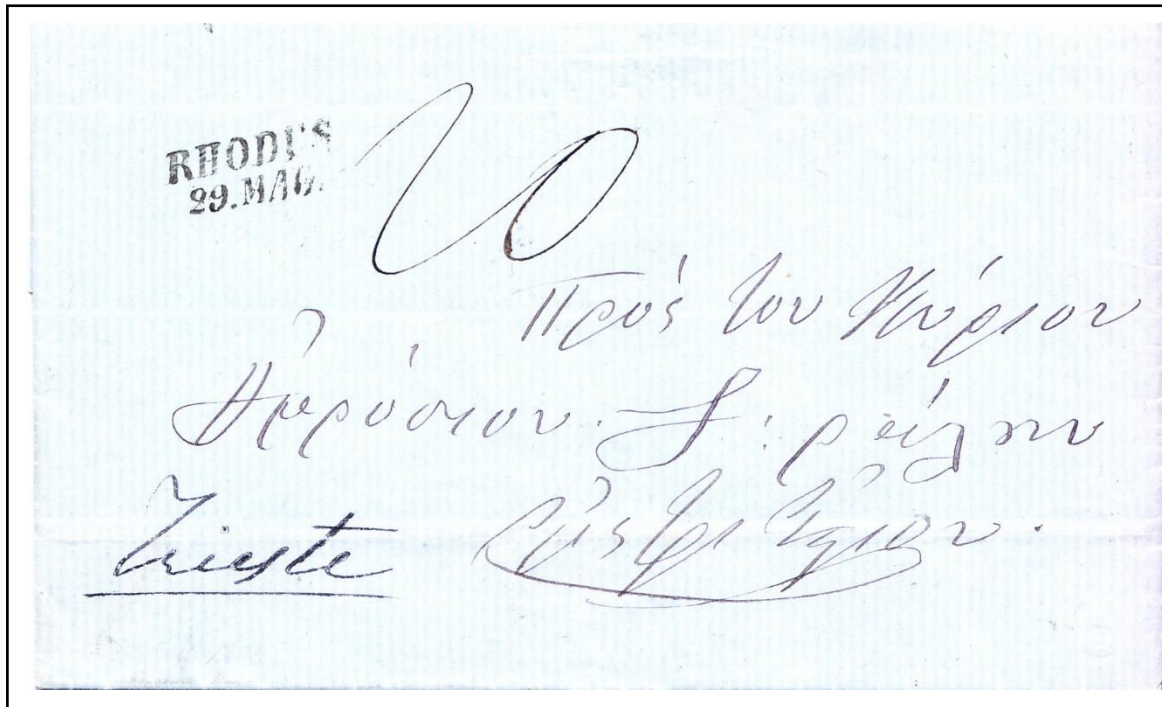 RHODUS
29.MAG.
20
Πρὸς τον Κύριον
Ἀμβρόσιον. Σ: ράλλην
Trieste Εἰς